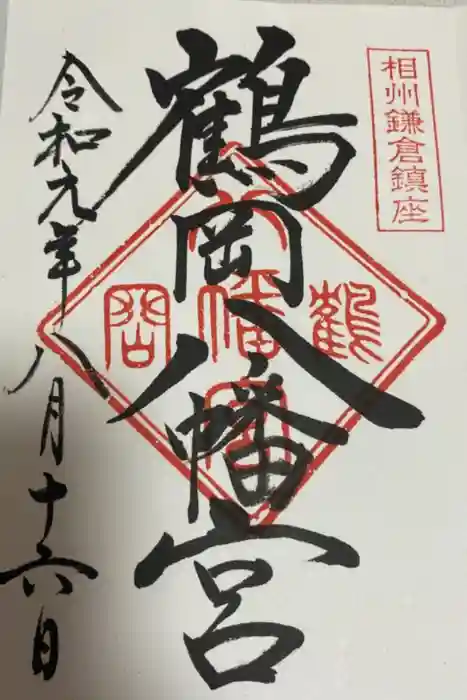 相州鎌倉鎮座
鶴岡八幡宮
鶴
岡
八
幡
宮
令和元年八月十六日